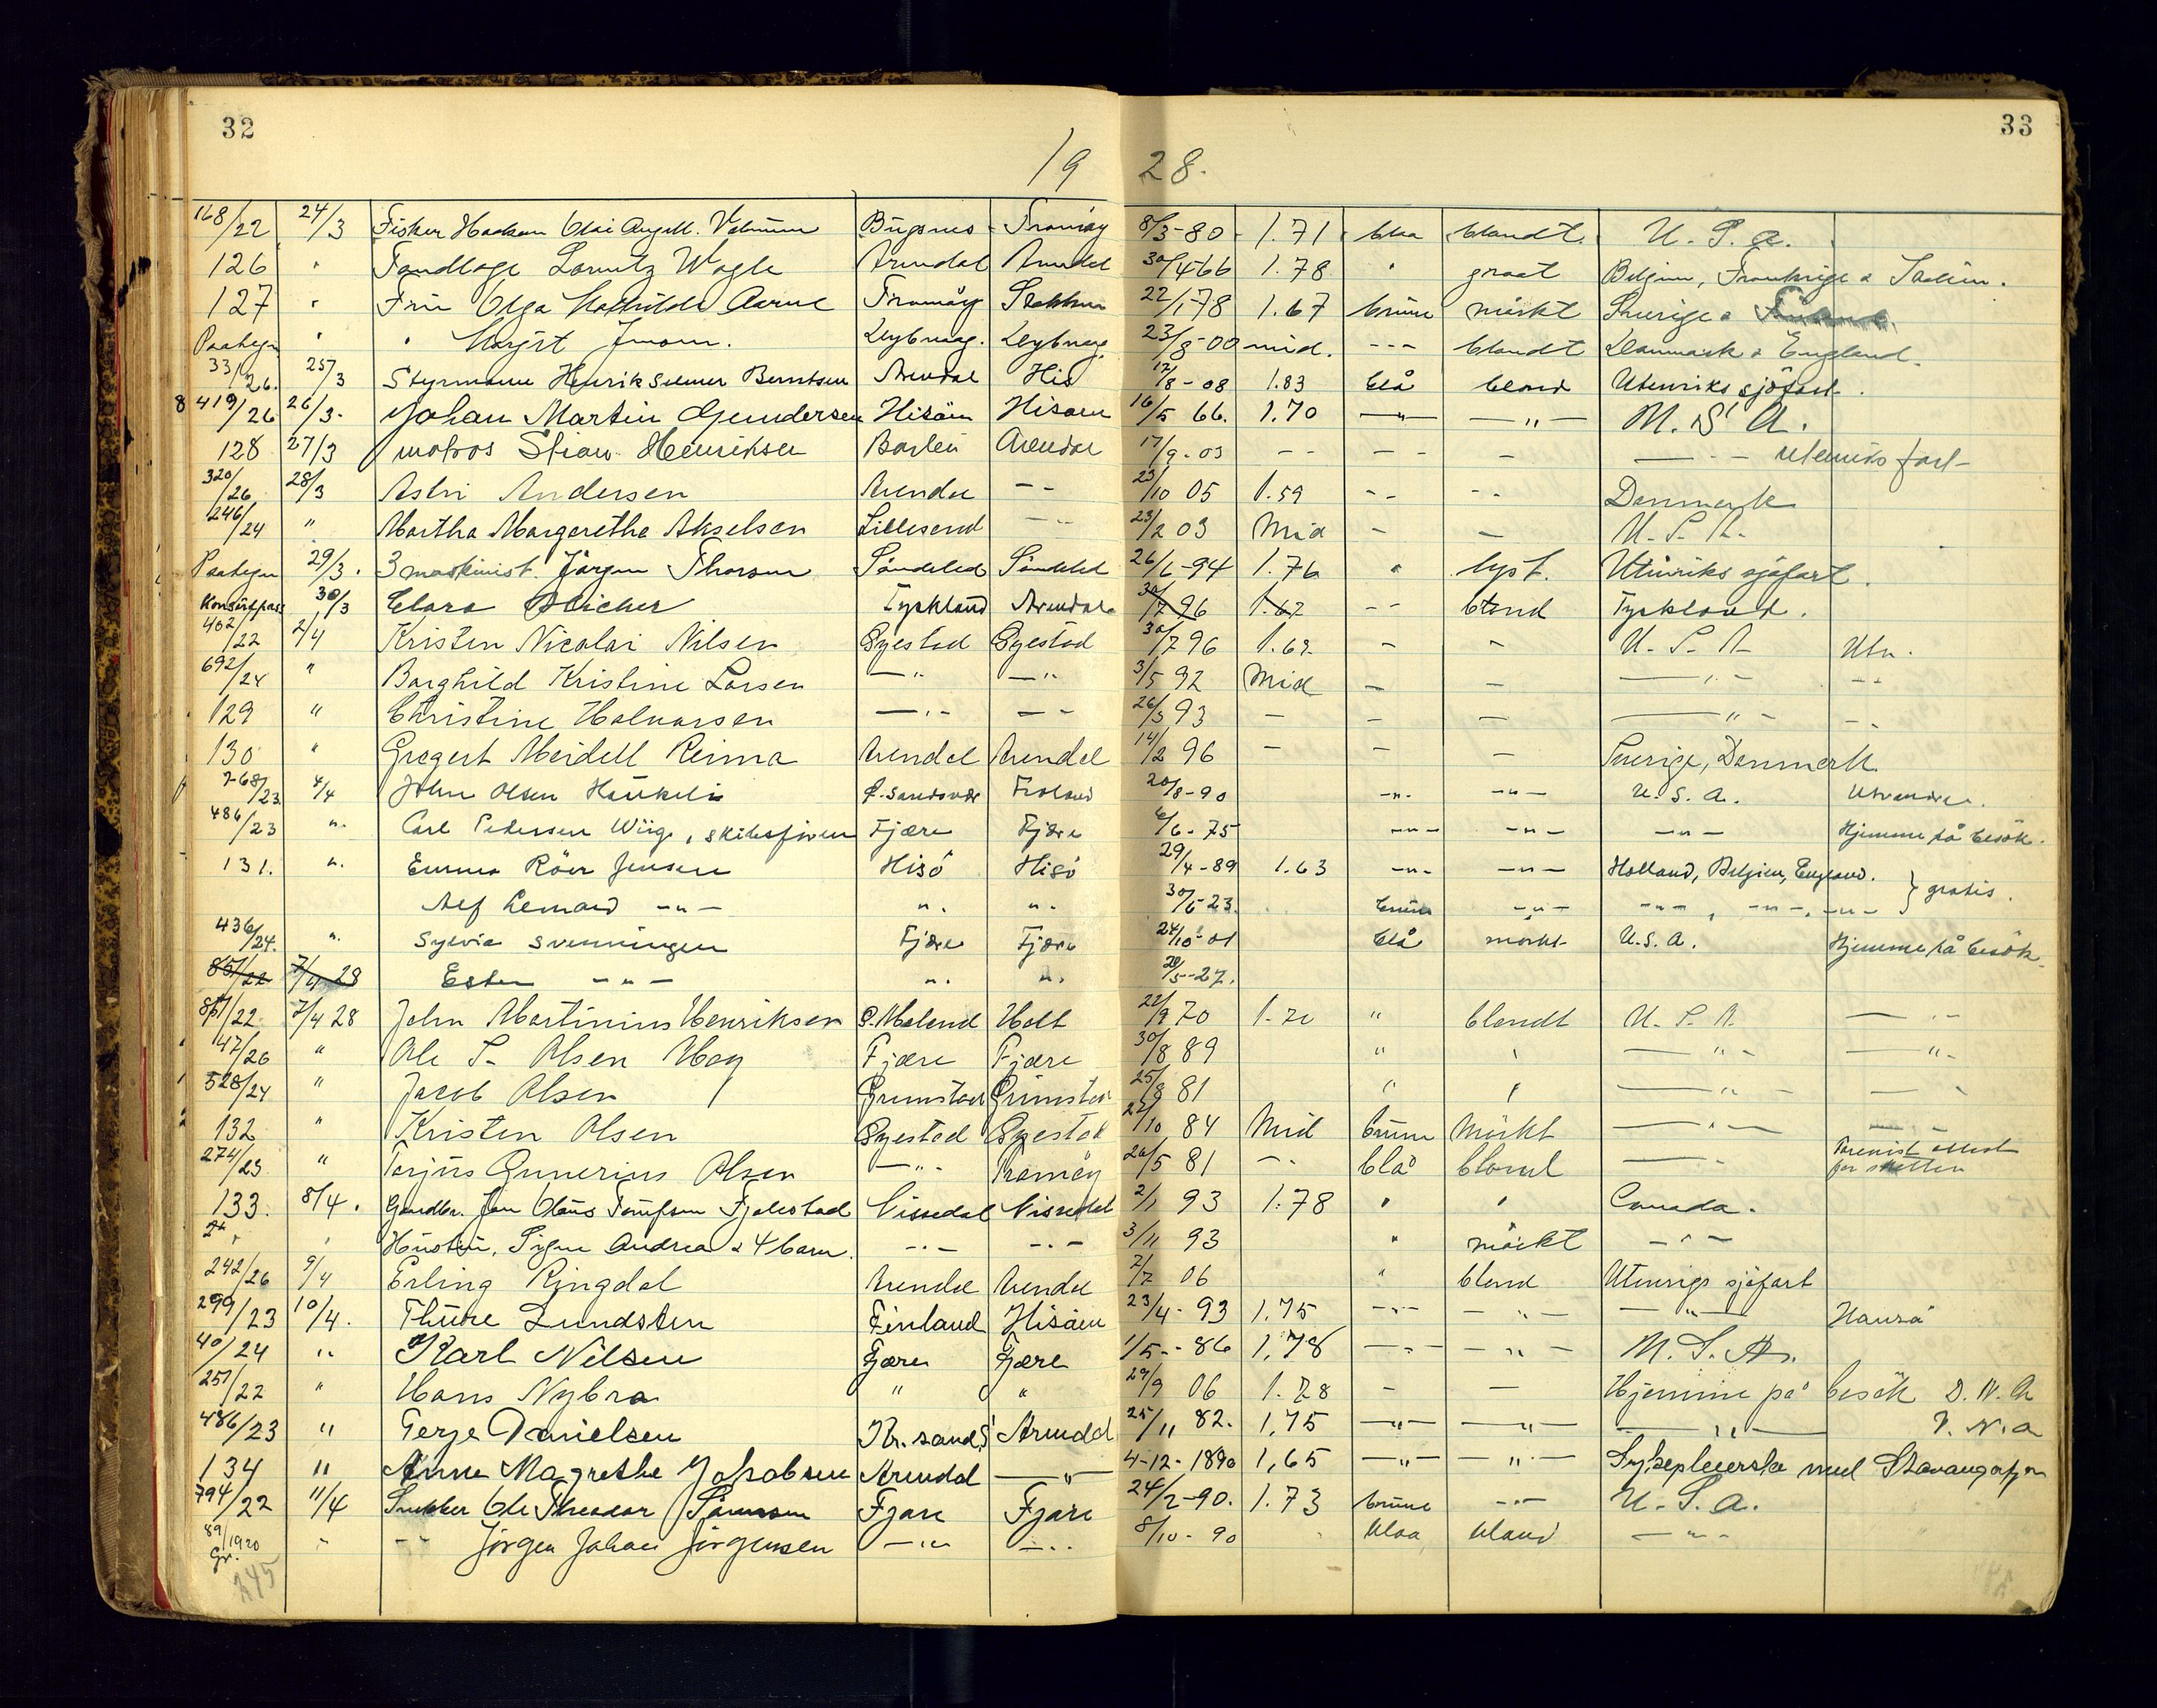 32
33
19 28.
168/22 24/3 Fisker Haakon Olai Angell. Bugsnes Tromöy 8/3-80 1.71 blaa blandt. U.S.A.
126 " Tandlæge Lorentz Wagle Arendal Arendal 30/4 66 1.78 " graat Belgien, Frankrige & Italien.
127 " Frü Olga Mathilde Aarne Tromöy Stokken 22/1 78 1.67 brüne mörkt Sverige &
Paategn " " Margit Lyngvaag. Lyngvaag. 23/8-00 mid. --- blandt Danmark & England.
33/26. 25/3 Styrmann Henrik Selmer Berntsen Arendal His 12/8-08 1.83 blå blond Utenriks sjöfart.
8 419/26 26/3. Johan Martin Gundersen Hisöen Hisöen 16/5 66. 1.70 —"— —"— U.S.A.
128 27/3 matros Stian Henriksen Arendal 17/9-03 -- -- - — -- utenriks fart
320/26 28/3 Astri Andersen Arendal -- 23/10 05 1.59 -- -- Danmark
246/24 " Martha Margrethe Akselsen Lillesand -- 23/2 03 Mid - - U.S.A.
Paategn 29/3. 3 maskinist. Jörgen Thorsen Söndeled Söndeled 26/6-94 1.76 " lyst. Utenriks sjöfart.
Konsülpass 30/3 Clara Blicher Tyskland Arendal 30/7 96 1.62 -- blond Tyskland.
402/22 2/4 Kristen Nicolai Nilsen Øyestad Øyestad 30/7 96 1.62 - - U.S.A Utv.
692/24 " Borghild Kristine Larsen —"- —"- 3/5 92 Mid - - —"- --
129 " Christine Halvorsen —"- -- 26/3 93 - - - —"- --
130 " Gregert Meidell Reima Arendal Arendal 14/2 96 - - - Sverige, Danmark
268/23 4/4 John Olsen Haükeli Ö. Sandsvær Froland 20/8-90 -"- -"- U.S.A. Utvandrer.
486/23 ". Carl Pedersen Wiig, skibsfører Fjære Fjære 6/6-75 -"- -"- -"- Hjemme på besök.
131. ". Emma Röer Jensen Hisö Hisö 29/4-89 1.63 -"- -"- Holland, Belgien, England.
Alf Lennard -"- ". ". 30/6-23. brün -"- -"-, -"-, -"- } gratis.
436/24. ". Sylvia Svenningen Fjære Fjære 24/10-01 blå mörkt U.S.A. Hjemme på besök.
851/22 7/4 28 Ester -"- ". ". 28/5-27.
851/22 7/4 28 John Martinius Henriksen Ö. Moland Holt 22/9 70 1.70 " blondt U.S.A. — "-
47/26 " Ole S. Olsen Hoy Fjære Fjære 30/8 89 " " —"- —"-
528/24 " Jacob Olsen Grimstad Grimstad 25/8 81 " " —"- —"
132 " Kristen Olsen Øyestad Øyestad 22/10 84 Mid brüne Mörkt —"—
274/23 " Torjüs Gunerius Olsen —"- Tromöy 20/5 81 -- blå blond — - attest for skatten
133. 8/4. Gaardbr. Jon Olaüs Fjalestad Nissedal Nissedal 2/1 93 1.78 " " Canada.
" " Hüstrü, Signe Andrea & 4 barn. -"- -"- 3/11 93 " mörkt -"-
242/26 9/4 Erling Ringdal Arendal Arendal 7/7 06 " blond Utenrigs sjöfart
299/23 10/4. Thüre Lundsten Finland Hisöen 23/4-93 1.75 -"- —"— —"— Hansa
40/24 " Karl Nilsen Fjære Fjære 1/5-86 1,78 -"- —"— U.S.A.
251/22 " Hans Nybro " " 29/9 06 1.78 - — Hjemme på besök D.N.A
486/23 " Terje Danielsen Kr.sand S Arendal 25/11 82. 1,75 —"— —"— —"— D.N.A
134 " Anne Magrethe Jakobsen Arendal —"— 4-12-1890 1,65 —"— —"— Sykepleierske med Stavangerfjor
794/22 11/4 Snekker Ole Theodor Sörensen Fjære Fjære 24/2-90. 1.73 brüne -"- U.S.A.
89/1920 Gr. " -- Jörgen Johan Jörgensen —"— —"- 8/10-90 blaa bland -"-
245